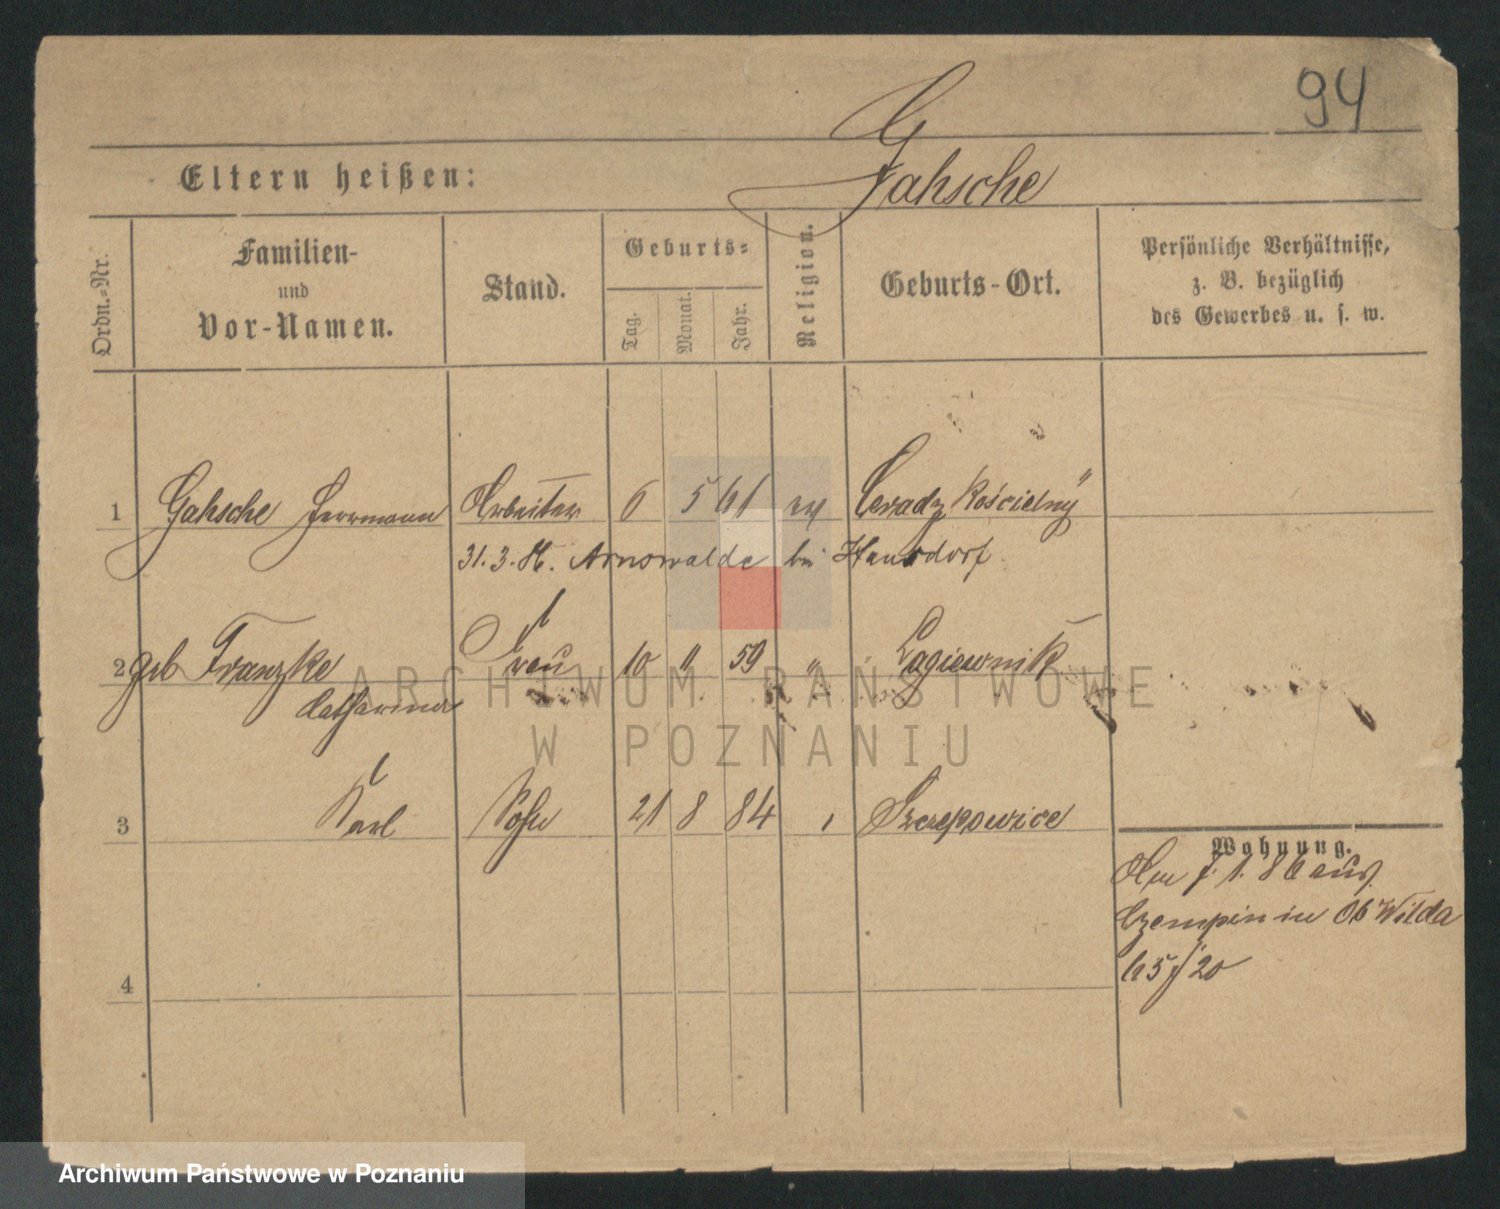 94
G
Eltern heißen: Gahsche
Ordn.-Nr.
Familien- und Vor-Namen.
Stand.
Geburts-
Tag.
Monat.
Jahr.
Religion.
Geburts-Ort.
Persönliche Verhältnisse, z. B. bezüglich des Gewerbes u. s. w.
1 Gahsche Herrmann Arbeiter 6 5 61 ev Ceradz Kościelny
31. 3. Arnswalde bei Hansdorf
2 geb Franzke Frau 10 " 59 " Lagiewnik
Catharina
3 Karl Sohn 21 8 84 Szczepowice
Wohnung.
Am 7. 1. 86 aus
Czempin in Ob Wilda
65 / 20
4
ARCHIWUM PAŃSTWOWE
W POZNANIU
Archiwum Państwowe w Poznaniu